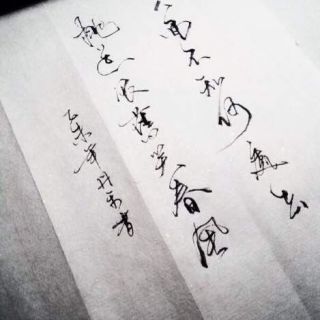 面不知何處去
桃花依舊笑春風
乙未年